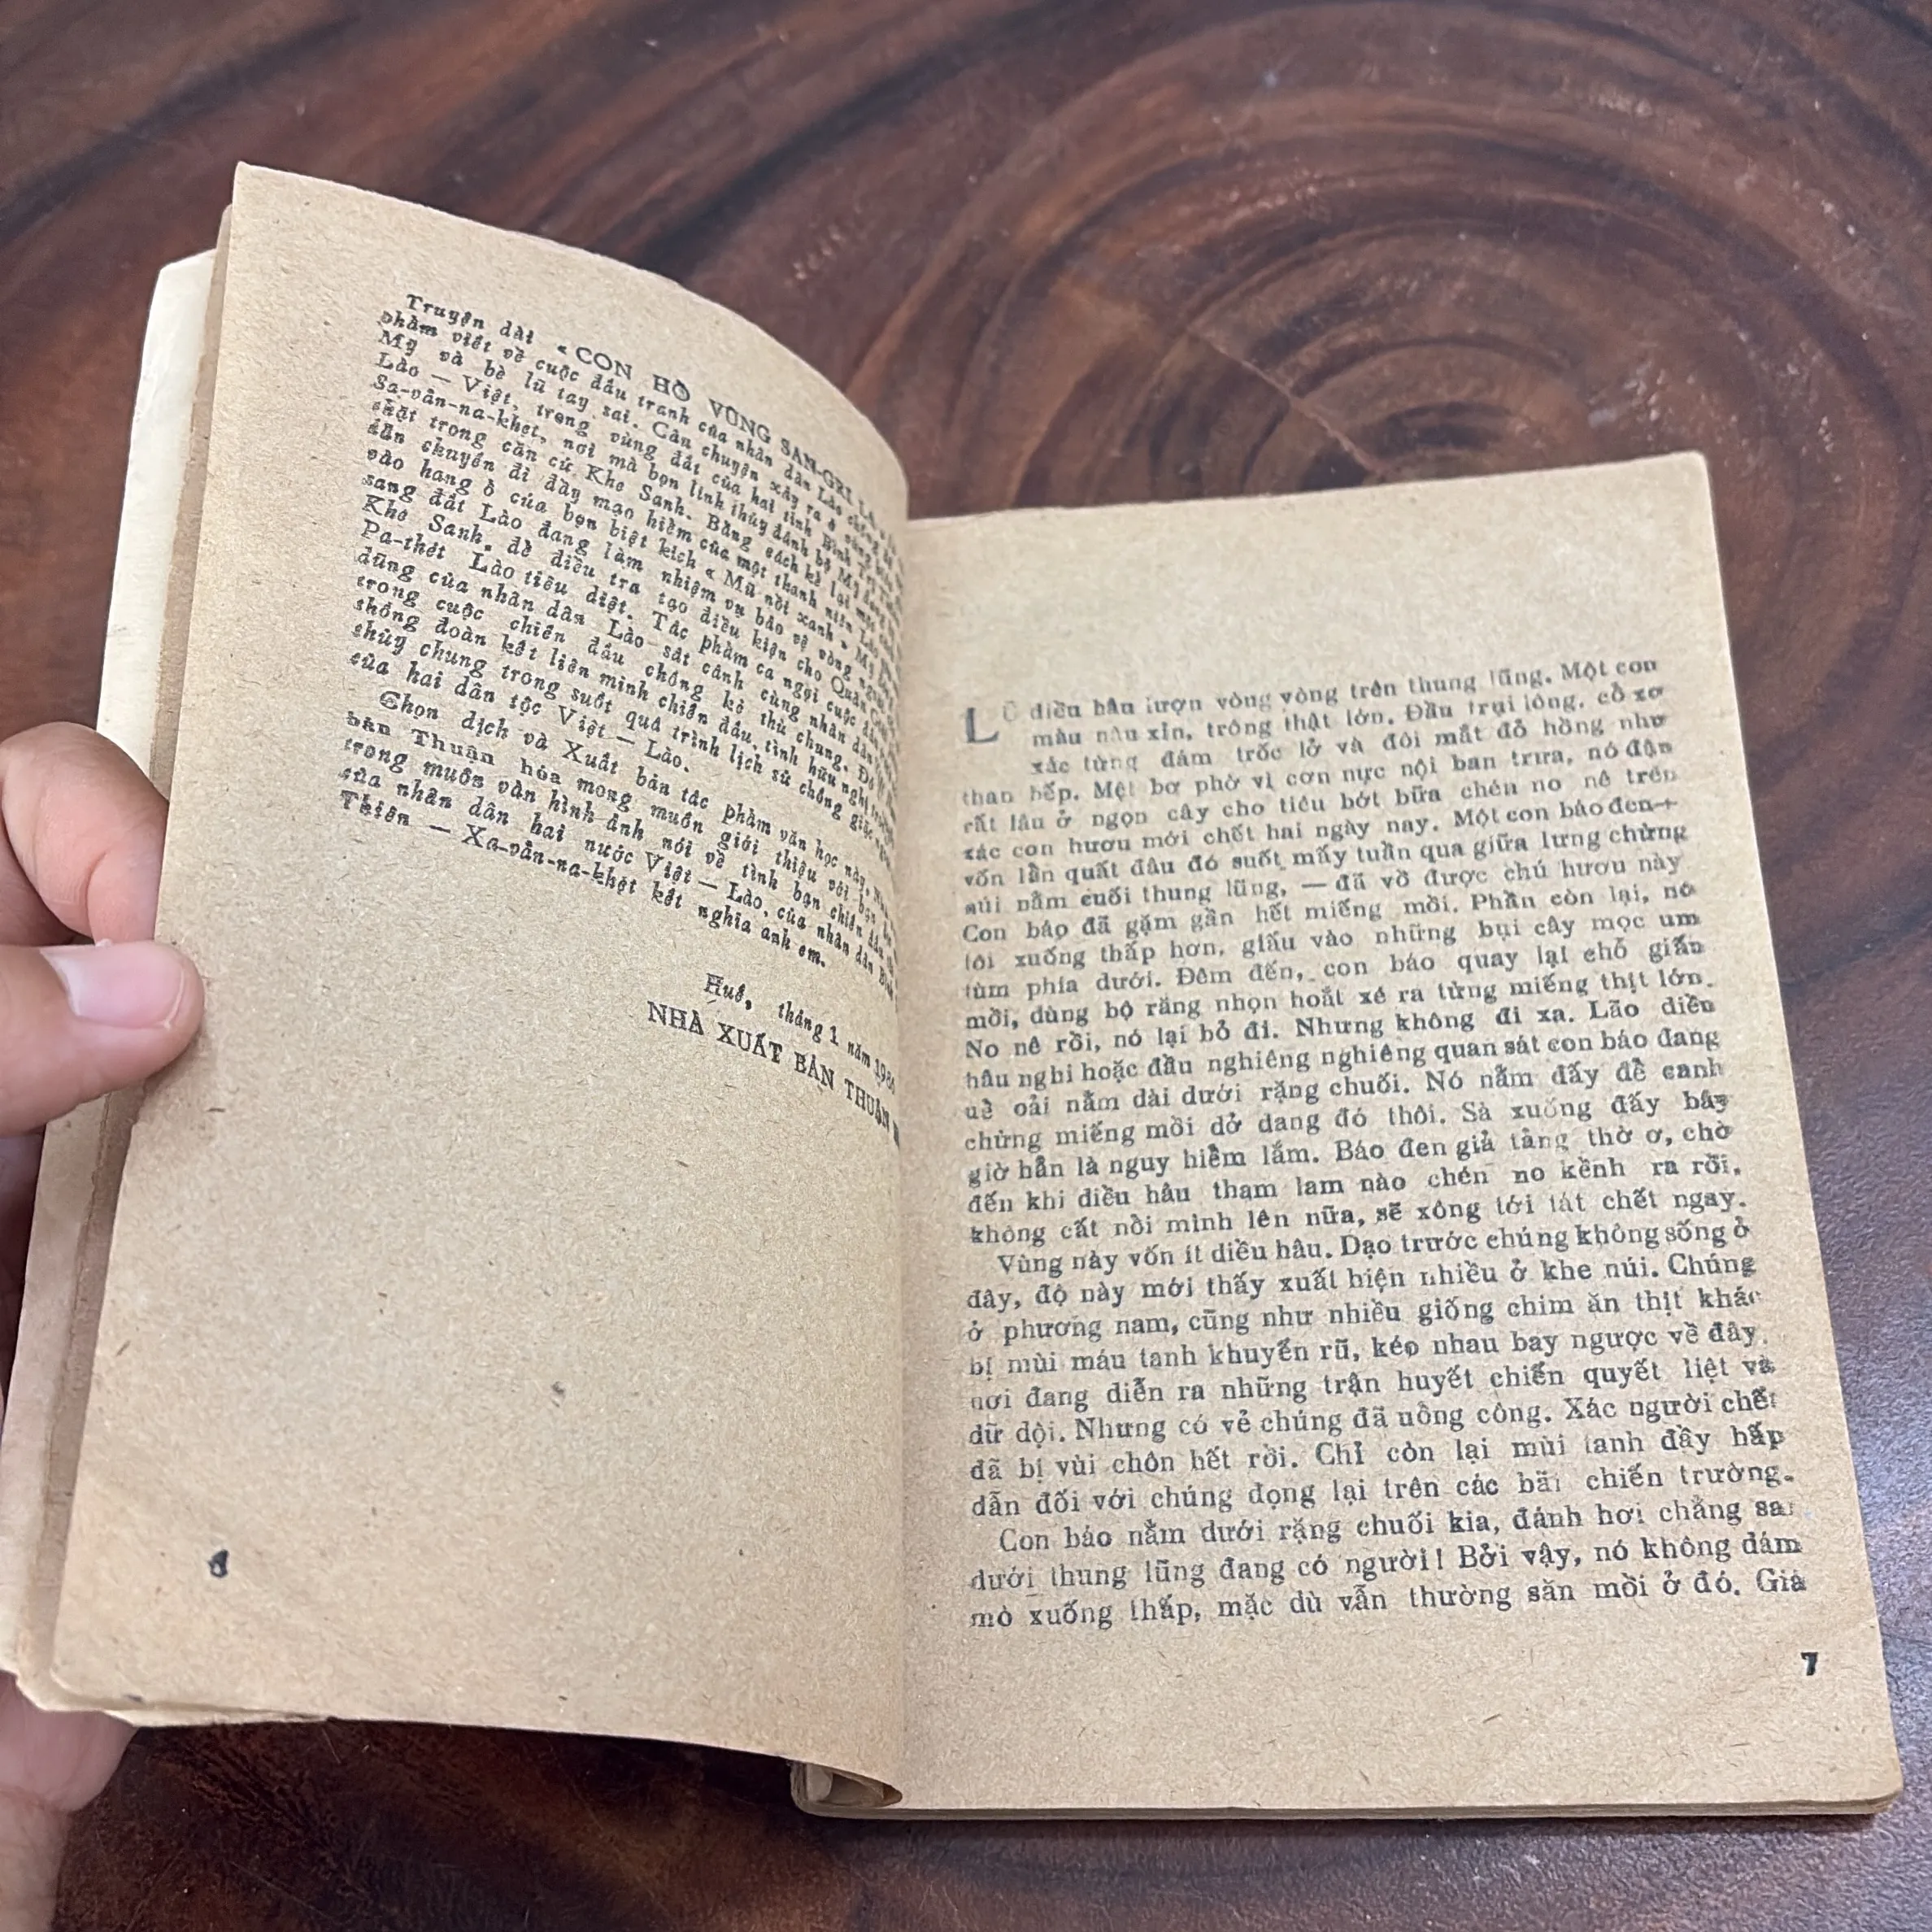 Truyện dài « CON HỔ VÙNG SAN-GRI LA
phẩm viết về cuộc đấu tranh của nhân dân Lào chống
Mỹ và bè lũ tay sai. Câu chuyện xảy ra ở vùng
Lào — Việt, trong vùng đất của hai tỉnh Bình Trị Thiên
Sa-vẳn-na-khẹt, nơi mà bọn lính thủy đánh bộ Mỹ đang
chặt trong căn cứ Khe Sanh. Bằng cách kể lại một
dẫn chuyến đi đầy mạo hiểm của một thanh niên Lào
vào hang ổ của bọn biệt kích « Mũ nồi xanh » Mỹ
sang đất Lào đang làm nhiệm vụ bảo vệ vòng ngoài
Khe Sanh, để điều tra tạo điều kiện cho Quân
Pa-thét Lào tiêu diệt. Tác phẩm ca ngợi cuộc
dũng của nhân dân Lào sát cánh cùng nhân dân
trong cuộc chiến đấu chống kẻ thù chung. Đó
thống đoàn kết liên minh chiến đấu, tình hữu nghị
thủy chung trong suốt quá trình lịch sử chống giặc
của hai dân tộc Việt — Lào.
Chọn dịch và Xuất bản tác phẩm văn học này,
bản Thuận hóa mong muốn giới thiệu với bạn
trong muôn vàn hình ảnh nói về tình bạn chiến đấu
của nhân dân hai nước Việt — Lào, của nhân dân Bình
Thiên — Xa-vẳn-na-khẹt kết nghĩa anh em.
Huế, tháng 1 năm
NHÀ XUẤT BẢN THUẬN
LŨ diều hâu lượn vòng vòng trên thung lũng. Một con
màu nâu xỉn, trông thật lớn. Đầu trụi lông, cổ xơ
xác từng đám trốc lở và đôi mắt đỏ hồng như
than bếp. Mệt bơ phờ vì cơn nực nội ban trưa, nó đậu
rất lâu ở ngọn cây cho tiêu bớt bữa chén no nê trên
xác con hươu mới chết hai ngày nay. Một con báo đen —
vốn lẩn quất đâu đó suốt mấy tuần qua giữa lưng chừng
núi nằm cuối thung lũng, — đã vồ được chú hươu này
Con báo đã gặm gần hết miếng mồi. Phần còn lại, nó
lôi xuống thấp hơn, giấu vào những bụi cây mọc um
tùm phía dưới. Đêm đến, con báo quay lại chỗ giấu
mồi, dùng bộ răng nhọn hoắt xé ra từng miếng thịt lớn.
No nê rồi, nó lại bỏ đi. Nhưng không đi xa. Lão diều
hâu nghi hoặc đầu nghiêng nghiêng quan sát con báo đang
uể oải nằm dài dưới rặng chuối. Nó nằm đấy để canh
chừng miếng mồi dở dang đó thôi. Sà xuống đấy bây
giờ hẳn là nguy hiểm lắm. Báo đen giả tảng thờ ơ, chờ
đến khi diều hâu tham lam nào chén no kềnh ra rồi,
không cất nổi mình lên nữa, sẽ xông tới tát chết ngay.
Vùng này vốn ít diều hâu. Dạo trước chúng không sống ở
đây, độ này mới thấy xuất hiện nhiều ở khe núi. Chúng
ở phương nam, cũng như nhiều giống chim ăn thịt khác
bị mùi máu tanh khuyến rũ, kéo nhau bay ngược về đây,
nơi đang diễn ra những trận huyết chiến quyết liệt và
dữ dội. Nhưng có vẻ chúng đã uổng công. Xác người chết
đã bị vùi chôn hết rồi. Chỉ còn lại mùi tanh đầy hấp
dẫn đối với chúng đọng lại trên các bãi chiến trường.
Con báo nằm dưới rặng chuối kia, đánh hơi chẳng sai
dưới thung lũng đang có người! Bởi vậy, nó không dám
mò xuống thấp, mặc dù vẫn thường săn mồi ở đó. Giá
7